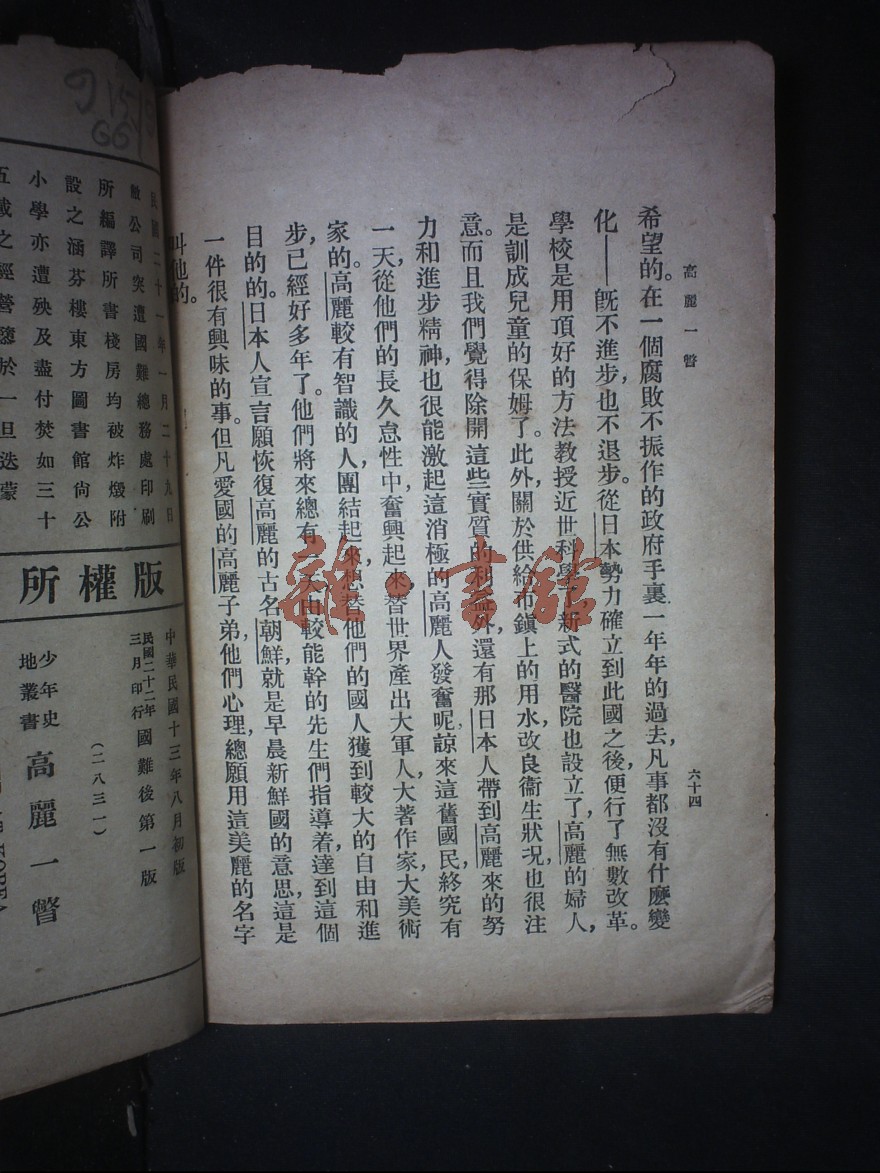 高麗一瞥
六十四
希望的。在一個腐敗不振作的政府手裏一年年的過去，凡事都沒有什麼變
化——旣不進步，也不退步。從日本勢力確立到此國之後，便行了無數改革。
學校是用頂好的方法教授近世科學，新式的醫院也設立了，高麗的婦人，
是訓成兒童的保姆了。此外關於供給市鎭上的用水，改良衞生狀況，也很注
意。而且我們覺得除開這些實質的利益外，還有那日本人帶到高麗來的努
力和進步精神，也很能激起這消極的高麗人發奮呢，諒來這舊國民，終究有
一天，從他們的長久怠性中奮興起來，替世界產出大軍人，大著作家，大美術
家的。高麗較有智識的人，團結起來，想替他們的國人獲到較大的自由和進
步，已經好多年了。他們將來總有一天由較能幹的先生們指導着，達到這個
目的的。日本人宣言願恢復高麗的古名，朝鮮就是早晨新鮮國的意思，這是
一件很有興味的事。但凡愛國的高麗子弟，他們心理，總願用這美麗的名字
叫他的。
民國二十一年一月二十九日
敝公司突遭國難總務處印刷
所編譯所書棧房均被炸燬附
設之涵芬樓東方圖書館尙公
小學亦遭殃及盡付焚如三十
五載之經營隳於一旦迭蒙
版權所
中華民國十三年八月初版
民國二十二年三月印行
國難後第一版
（二八三一）
少年史地叢書
高麗一瞥
雜·書館